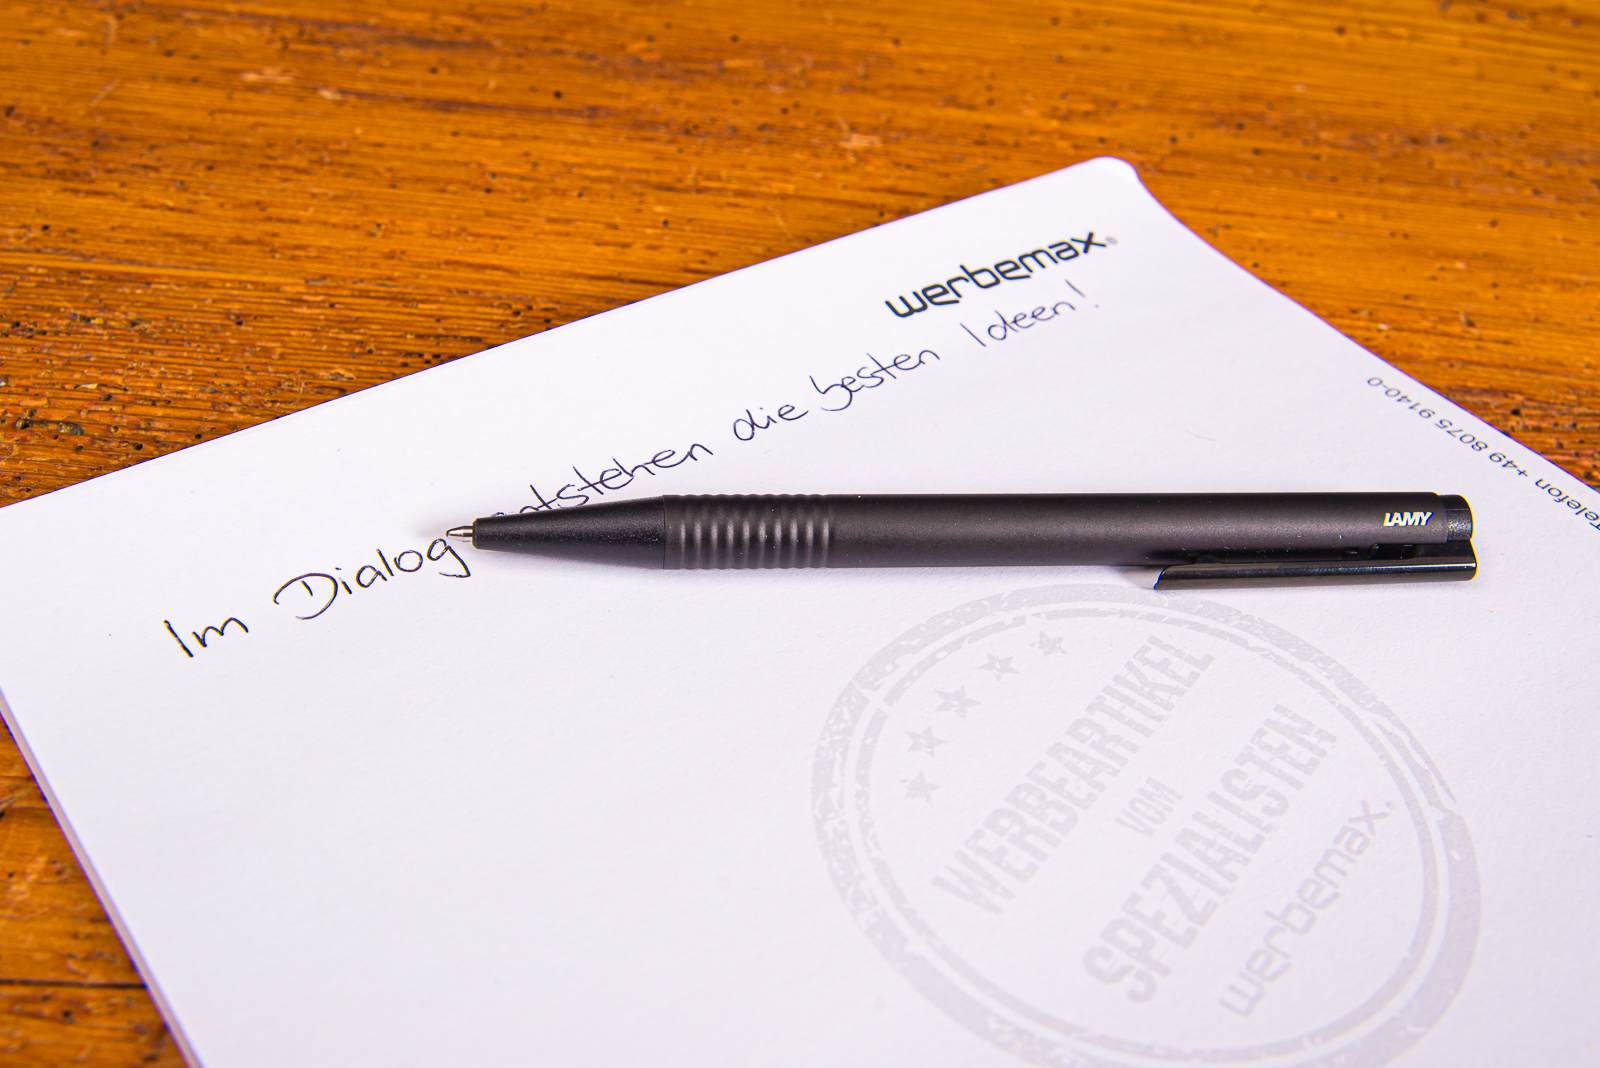 werbemax®
Im Dialog entstehen die besten Ideen!
Telefon +49 8075 9140-0
LAMY
WERBEARTIKEL
VOM
SPEZIALISTEN
werbemax.